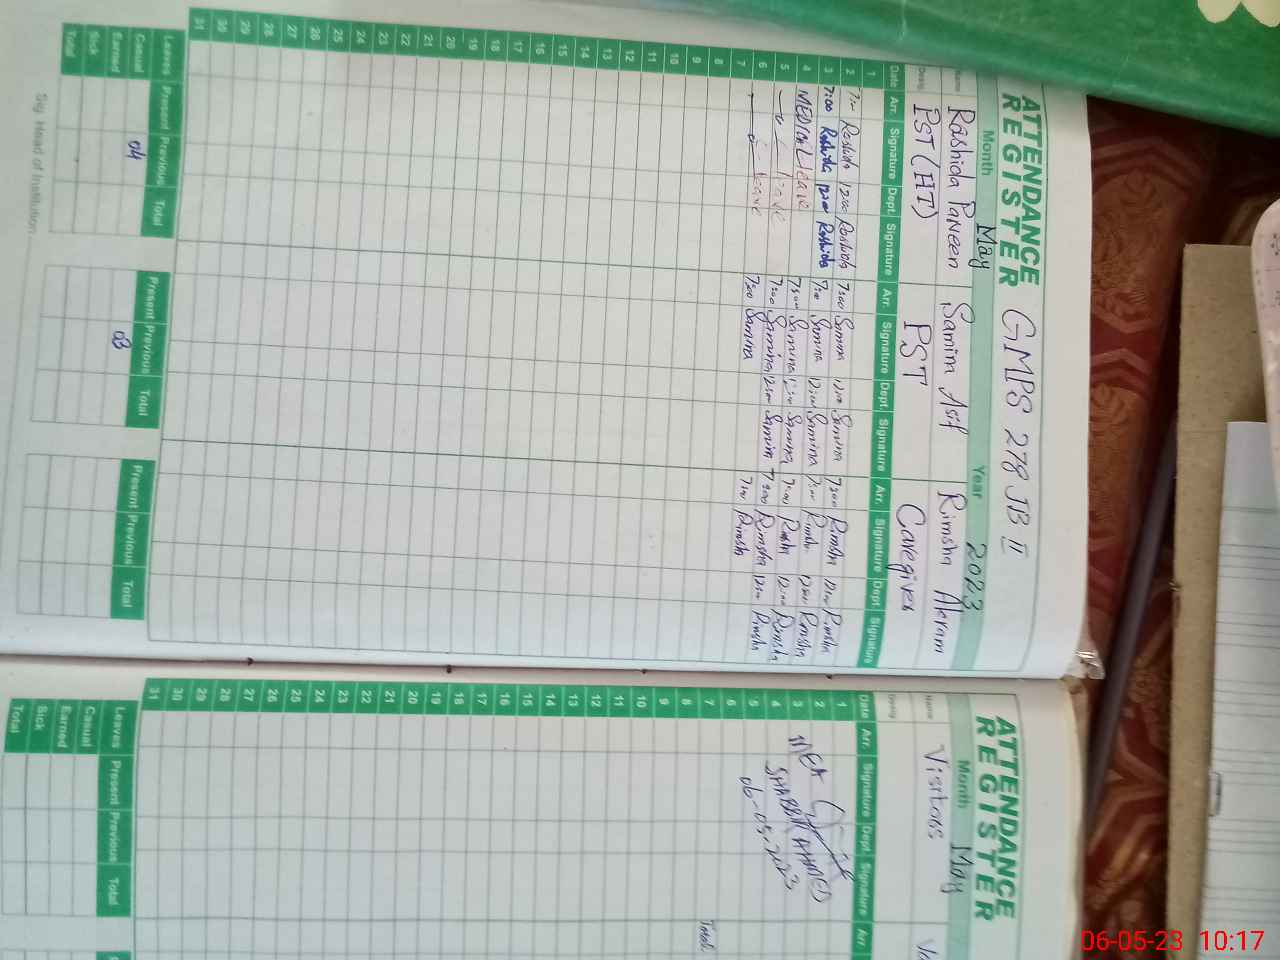 ATTENDANCE REGISTER GMPS 278 JB II
Month May Year 2023
Name Rashida Parveen Samim Asif Rimsha Akram
Desig. PST (HT) PST Caregiver
Date Arr. Signature Dept. Signature Arr. Signature Dept. Signature Arr. Signature Dept. Signature
1
2 Rashida 12:00 Rashida 7:00 Samina 12:00 Samina 7:00 Rimsha 12:00 Rimsha
3 7:00 Rashida 12:00 Rashida 7:00 Samina 12:00 Samina 7:00 Rimsha 12:00 Rimsha
4 MEDICAL Leave 7:00 Samina 12:00 Samina 7:00 Rimsha 12:00 Rimsha
5 Leave 7:00 Samina 12:00 Samina 7:00 Rimsha 12:00 Rimsha
6 Leave 7:00 Samina 7:00 Rimsha
7
8
9
10
11
12
13
14
15
16
17
18
19
20
21
22
23
24
25
26
27
28
29
30
31
Leaves Present Previous Total Present Previous Total Present Previous Total
Casual 04 08
Earned
Sick
Total
Sig. Head of Institution
ATTENDANCE REGISTER
Month May
Name Visitors
Date Arr. Signature Dept. Signature Arr.
1
2
3
4
5
6
7
8
9
10
11
12
13
14
15
16
17
18
19
20
21
22
23
24
25
26
27
28
29
30
31
MEA
SHABBIR AHMED
06-05-2023
Leaves Present Previous Total
Casual
Earned
Sick
Total
06-05-23 10:17